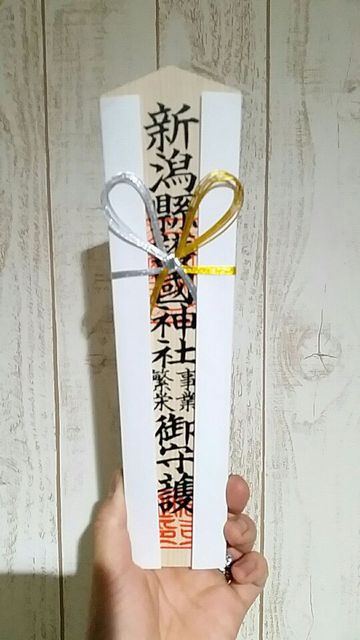 新潟縣護國神社
事業
繁栄
御守護